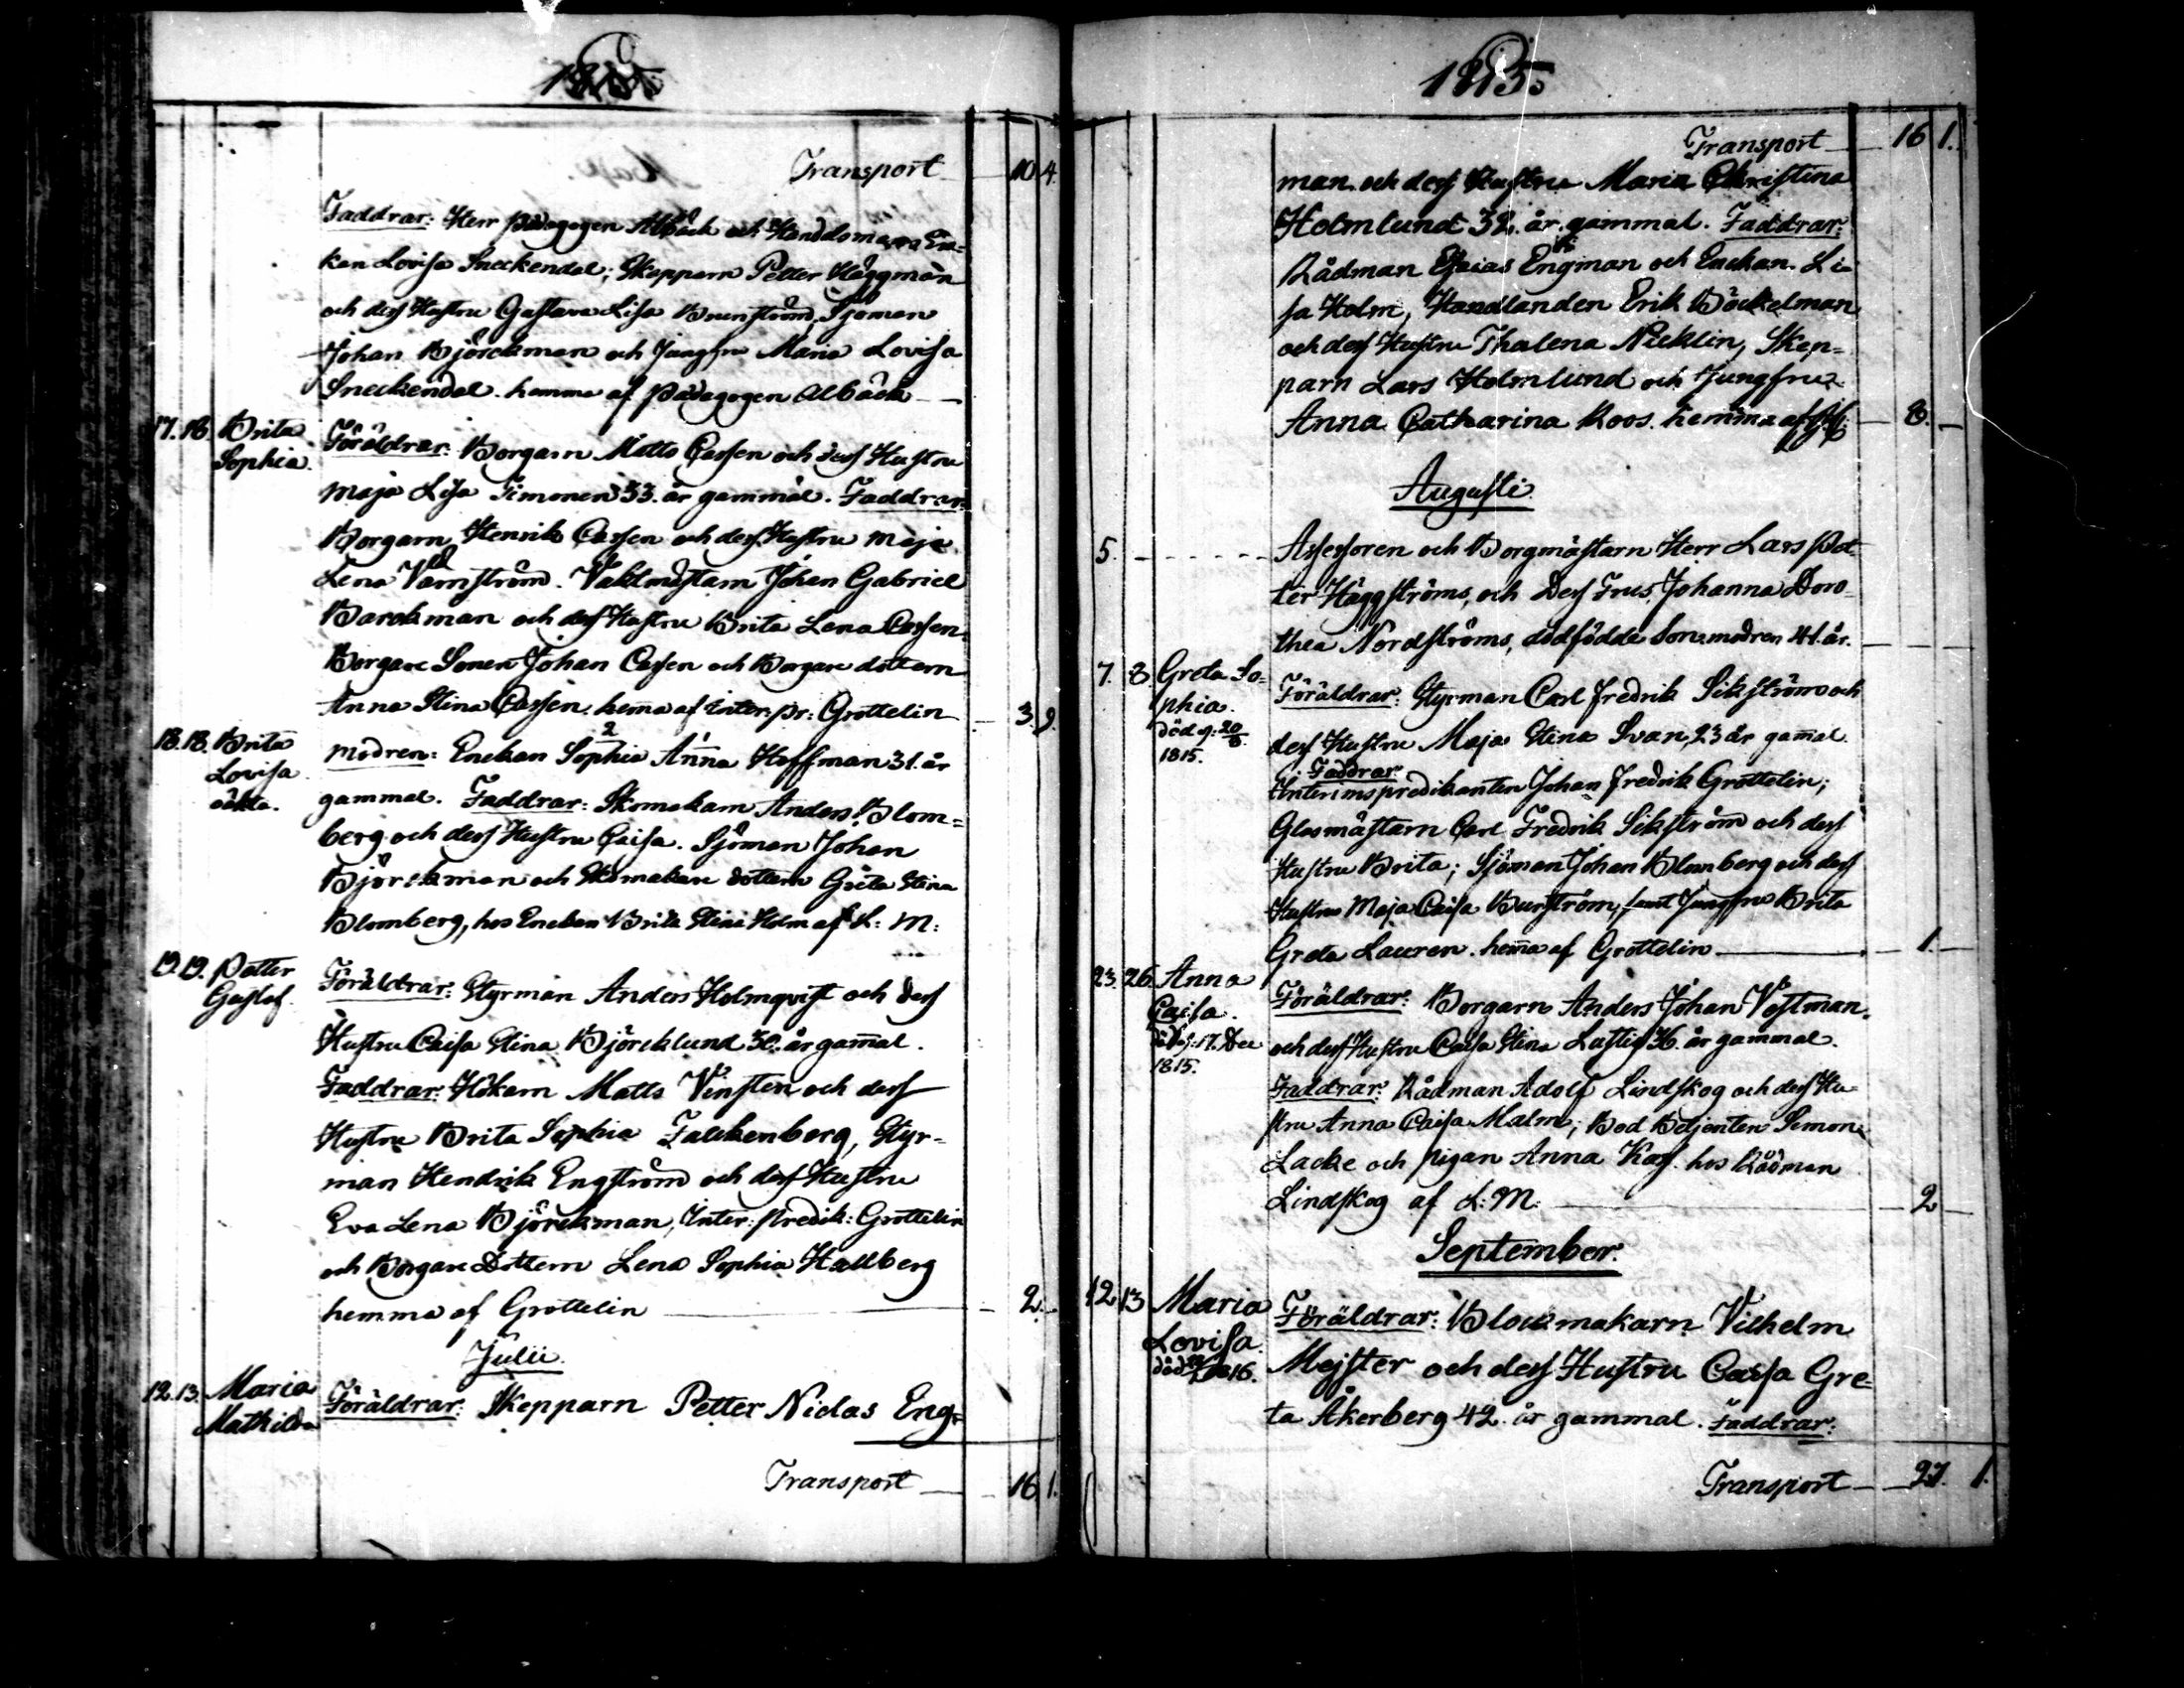 1815.
Transport 10 4.
Faddrar: Herr Pädagogen Albäck och Handelsmans En-
kan Lovisa Sneckendal; Skepparn Petter Häggman
och dess Hustru Gustava Lisa Brunström, Sjöman
Johan Björckman och Jungfru Maria Lovisa
Sneckendal. hemma af Pädagogen Albäck
17. 18. Brita Sophia.
Föräldrar: Borgarn Matts Cassen och dess Hustru
Maja Lisa Simonen 33. år gammal. Faddrar:
Borgarn Henrik Cassen och dess Hustru Maja
Lena Värnström. Vaktmästarn Johan Gabriel
Barckman och dess Hustru Brita Lena Cassen.
Borgare Sonen Johan Cassen och Borgare dottern
Anna Stina Cassen. hema af Inter: pr: Grottelin 3. 9.
18. 18. Brita Lovisa oäkta.
Modren: Enckan Sophia Anna Hoffman 31. år
gammal. Faddrar: Skomakarn Anders Blom=
berg och dess Hustru Caisa. Sjöman Johan
Björckman och Skomakare dottern Greta Stina
Blomberg, hos Enckan Brita Stina Holm af L: M:
19. 19. Petter Gustaf.
Föräldrar: Styrman Anders Holmqvist och dess
Hustru Caisa Stina Björcklund 30. år gamal.
Faddrar: Hökarn Matts Vinsten och dess
Hustru Brita Sophia Falckenberg, Styr-
man Hendrik Engström och dess Hustru
Eva Lena Björckman, Inter: predik: Grottelin
och Borgare Dottern Lena Sophia Hallberg
hemma af Grottelin 2.
Julii.
12. 13. Maria Mathilda
Föräldrar: Skepparn Petter Niclas Eng-
Transport 16 1.
1815.
Transport 16 1.
man och dess Hustru Maria Christina
Holmlund 32. år gammal. Faddrar:
Rådman Esaias Engman och Enckan Li-
sa Holm, Handlanden Erik Böckelman
och dess Hustru Thalena Nicklin, Skep-
parn Lars Holmlund och Jungfru
Anna Catharina Roos. hemma af 8.
Augusti.
5. Assessoren och Borgmästarn Herr Lars Pet
ter Häggströms, och Dess Frus, Johanna Doro-
thea Nordströms, dödfödde Son. modren 41. år.
7. 8 Greta So=
phia.
död d: 20/8.
1815.
Föräldrar: Styrman Carl Fredrik Sikström och
dess Hustru Maja Stina Svan, 23 år gamal.
Faddrar:
Interimspredikanten Johan Fredrik Grottelin;
Glasmästarn Carl Fredrik Sikström och dess
Hustru Brita; Sjöman Johan Blomberg och dess
Hustru Maja Caisa Burström, samt Jungfru Brita
Greta Lauren. hema af Grottelin 1.
23. 26. Anna
Caisa.
död d: 17. Dec
1815.
Föräldrar: Borgarn Anders Johan Vestman,
och dess Hustru Caisa Stina Lustig 36. år gammal.
Faddrar: Rådman Adolf Lindskog och dess Hu-
stru Anna Caisa Malm; Bod Betjenten Simon
Lacke och pigan Anna Kass. hos Rådman
Lindskog af L: M: 2
September.
12 13 Maria
Lovisa.
död 1816.
Föräldrar: Blockmakarn Vilhelm
Mejster och dess Hustru Caisa Gre=
ta Åkerberg 42. år gammal. Faddrar:
Transport 27. 1.